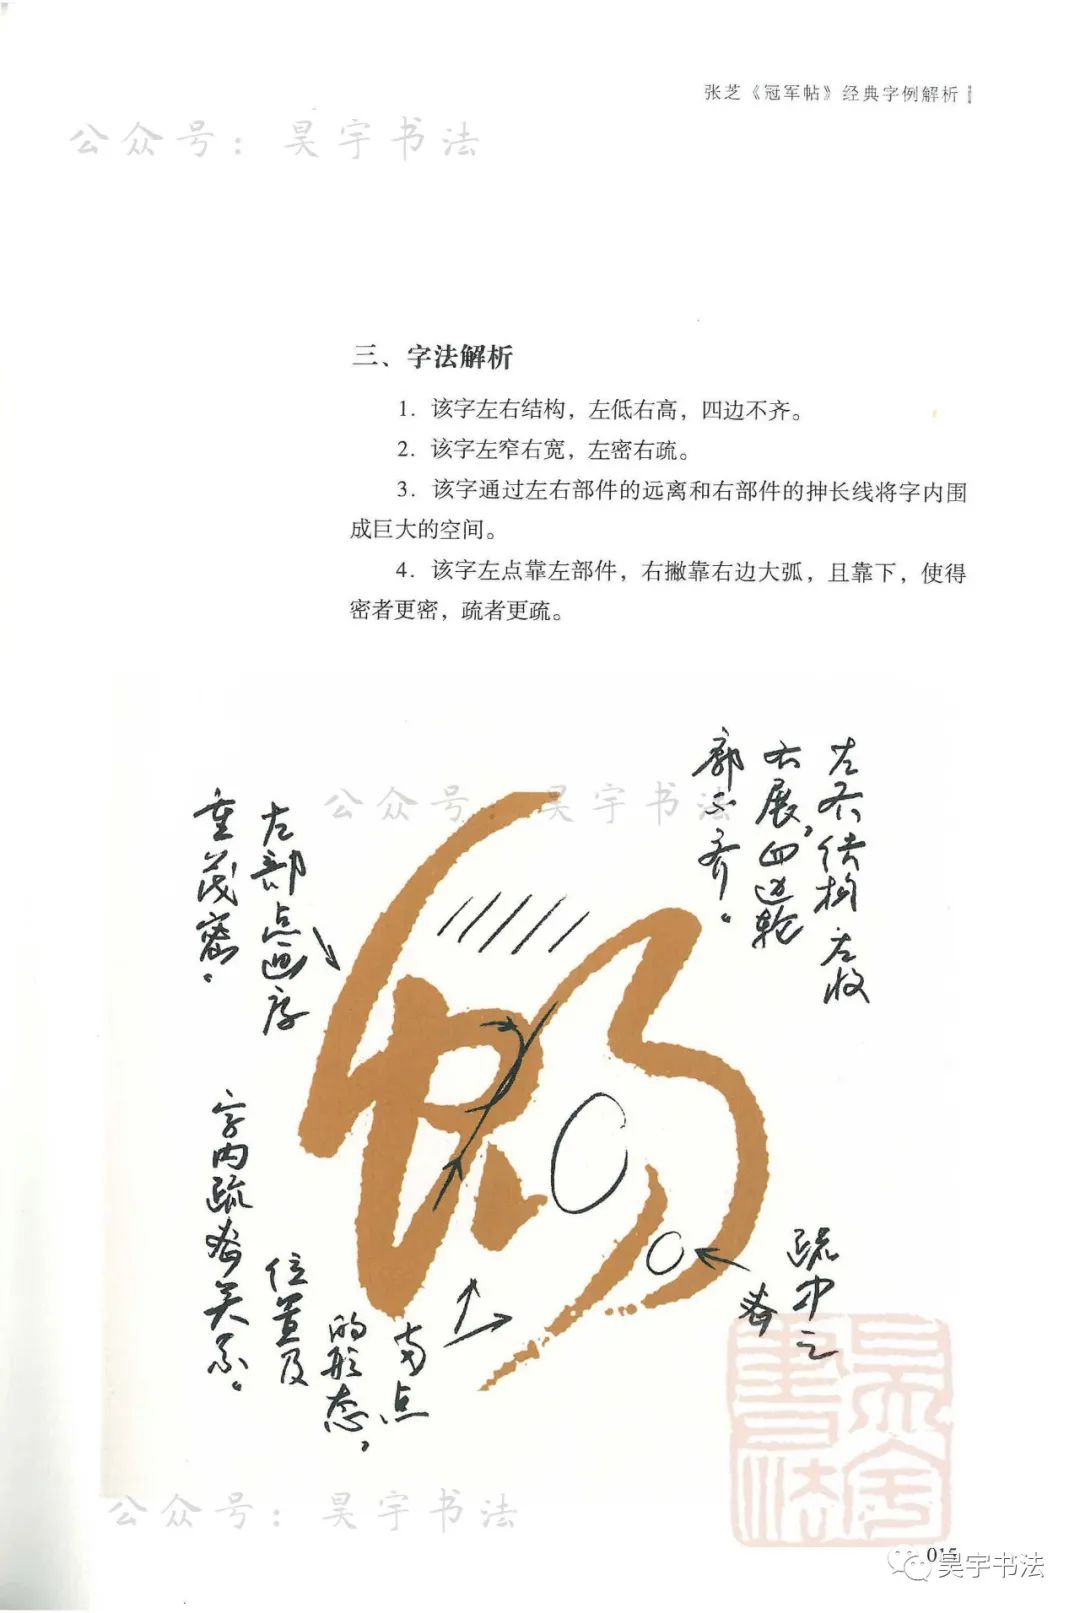 张芝《冠军帖》经典字例解析
公众号：昊宇书法
三、字法解析
1. 该字左右结构，左低右高，四边不齐。
2. 该字左窄右宽，左密右疏。
3. 该字通过左右部件的远离和右部件的抻长线将字内围
成巨大的空间。
4. 该字左点靠左部件，右撇靠右边大弧，且靠下，使得
密者更密，疏者更疏。
公众号：昊宇书法
左右结构左收
右展，四边轮
廓不齐。
左部点画厚
重茂密。
字内疏密关系。
位置及
的形态，
两点
疏中之
密
昊宇书法
公众号：昊宇书法
015
昊宇书法